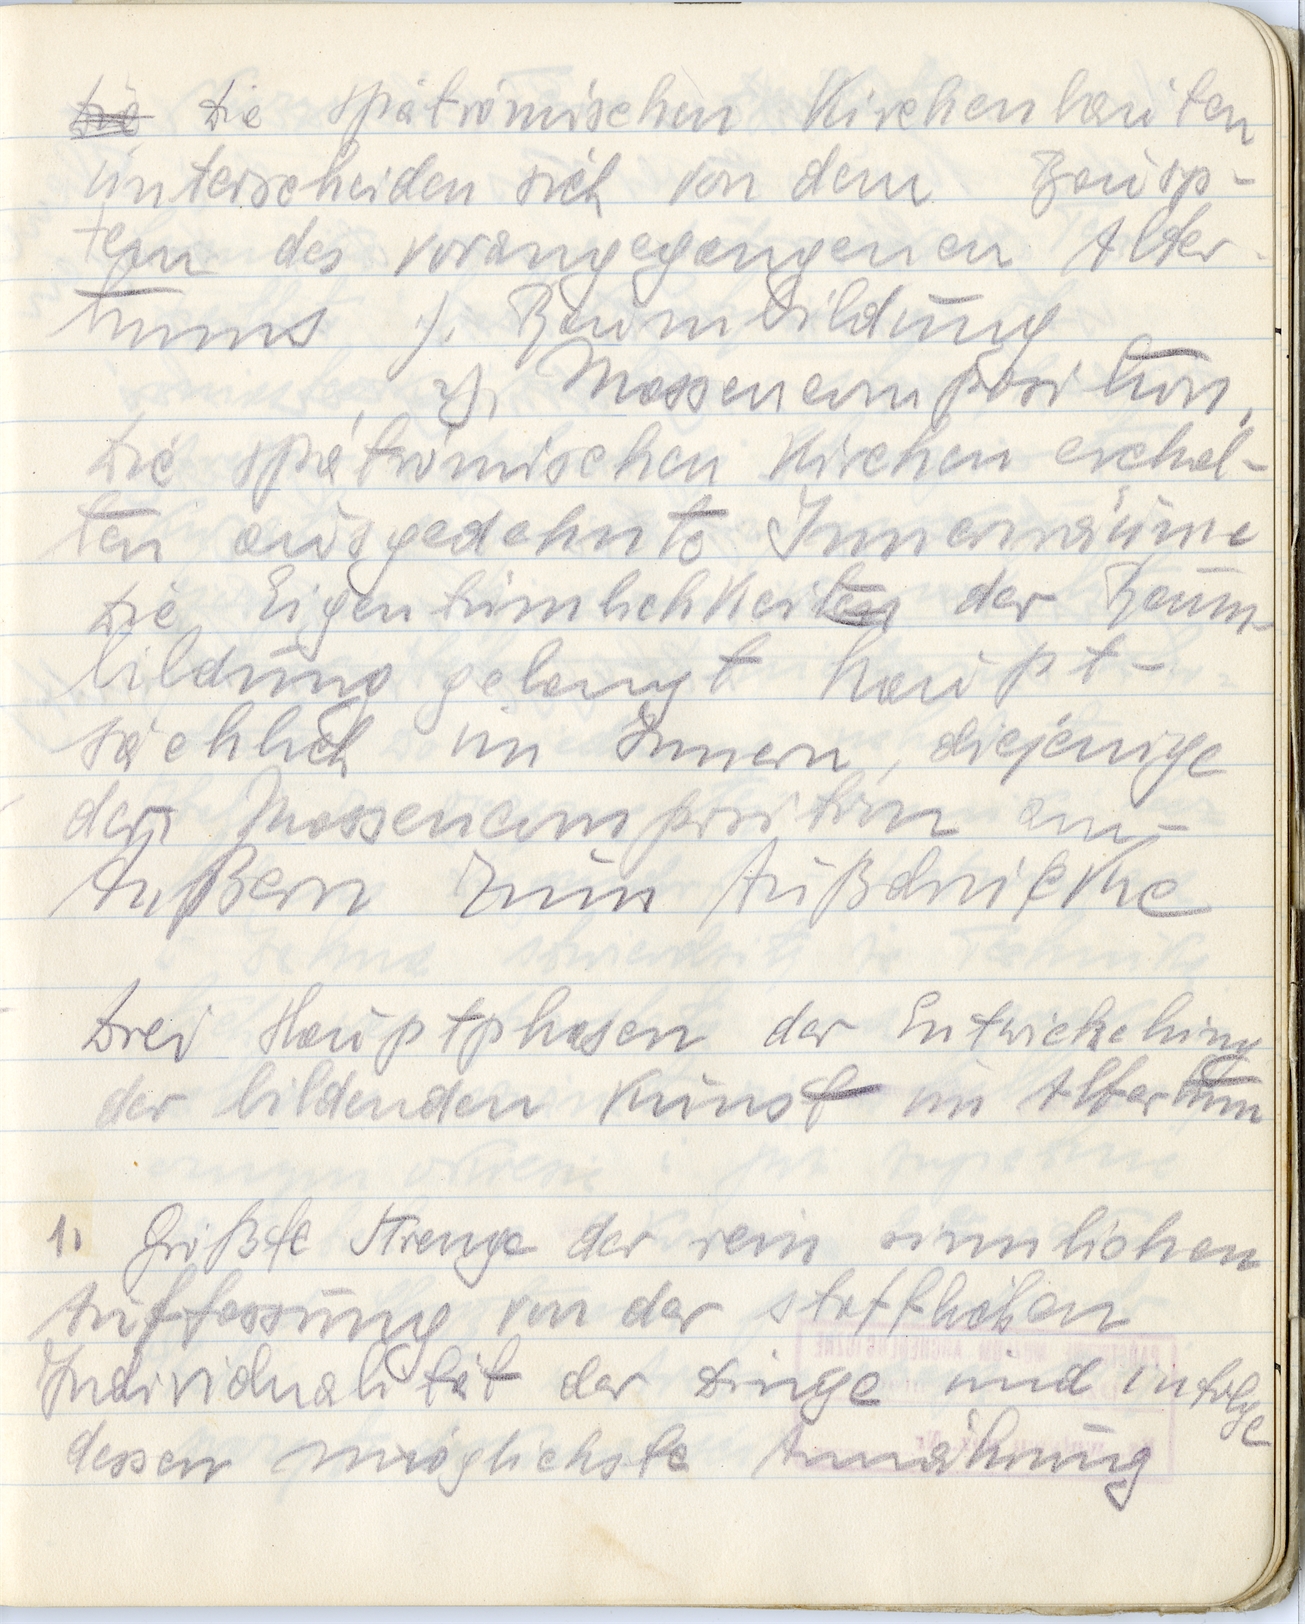 ~~Die~~ Die spätrömischen Kirchenbauten
unterscheiden sich von dem Bausys-
tem des vorangegangenen Alter-
tums 1). Raumbildung
2). Massencomposition,
Die spätrömischen Kirchen erhal-
ten ausgedehnte Innenräume
Die Eigentümlichkeiten der Raum-
bildung gelangt haupt-
sächlich im Innern, diejenige
der Massencomposition am
Außern zum Außdrucke
Drei Hauptphasen der Entwickelung
der bildenden Kunst im Altertum
1. Größte Strenge der rein sinnlichen
Auffassung von der stofflichen
Individualität der Dinge und infolge
dessen möglichste Annährung